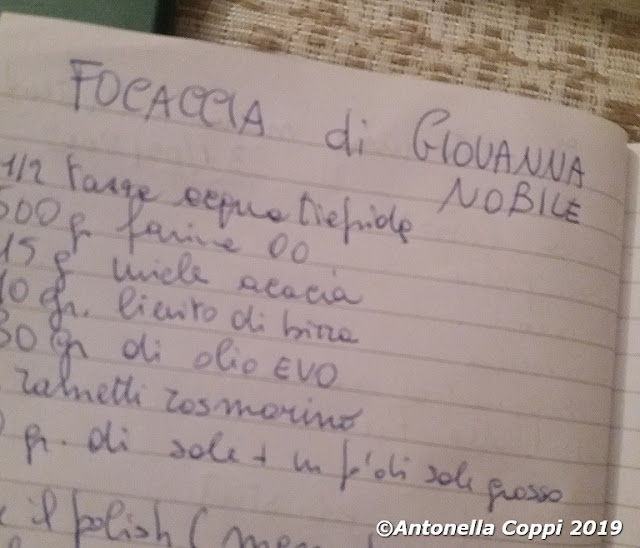 FOCACCIA di GIOVANNA
NOBILE
1/2 tazze acqua tiepide
500 g farine 00
15 g miele acacia
10 gr. lievito di birra
30 gr di olio EVO
rametti rosmarino
gr. di sale + un pò di sale grosso
il polish (
©Antonella Coppi 2019